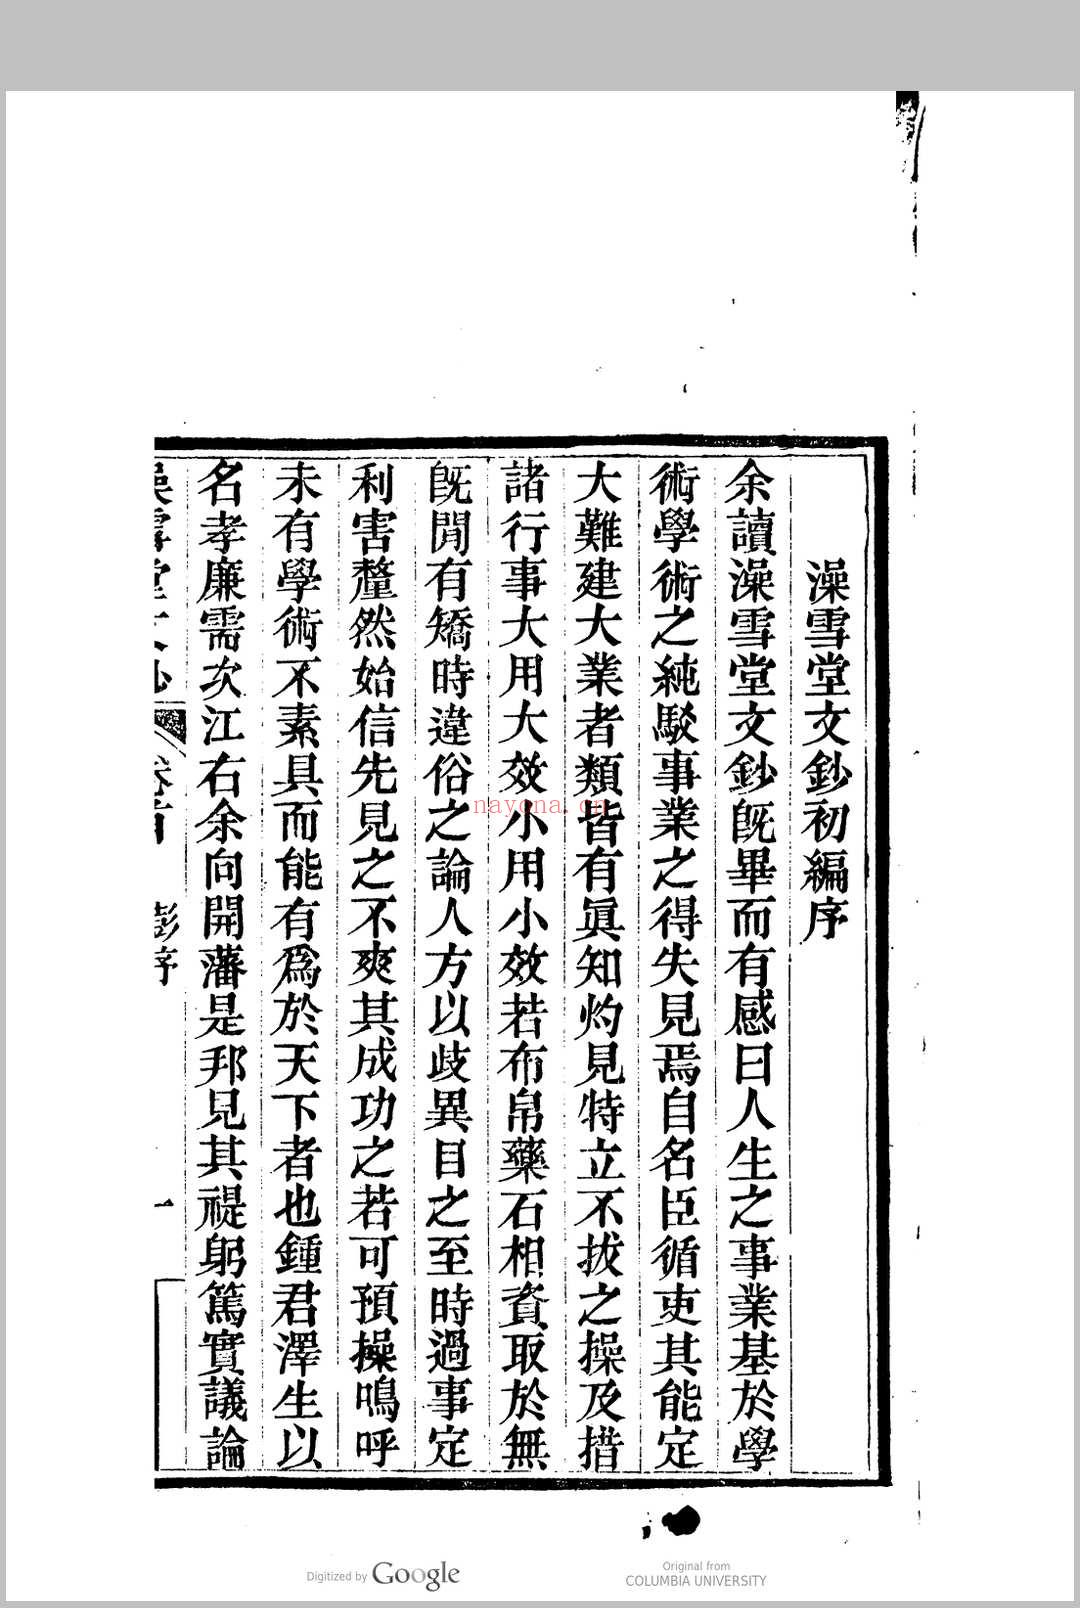 澡雪堂文鈔初編序
余讀澡雪堂文鈔旣畢而有感曰人生之事業基於學
術學術之純駁事業之得失見焉自名臣循吏其能定
大難建大業者類皆有眞知灼見特立不拔之操及措
諸行事大用大效小用小效若布帛藥石相資取於無
旣閒有矯時違俗之論人方以歧異目之至時過事定
利害釐然始信先見之不爽其成功之若可預操嗚呼
未有學術不素具而能有爲於天下者也鍾君澤生以
名孝廉需次江右余向開藩是邦見其禔躬篤實議論
澡雪堂文鈔 卷首 彭序 一
nayona.cn
Digitized by Google
Original from
COLUMBIA UNIVERSITY